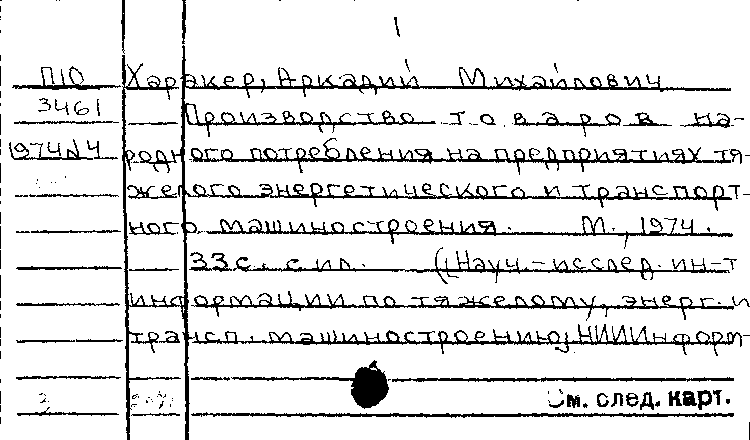 1
П10 Харакер, Аркадий Михайлович
3461 Производство товаров на-
1974 N 4 родного потребления на предприятиях тя-
желого энергетического и транспорт-
ного машиностроения. М., 1974.
33 с. с ил. ([Науч.-исслед. ин-т
информации по тяжелому, энерг. и
трансп. машиностроению; НИИИнформ-
См. след. карт.